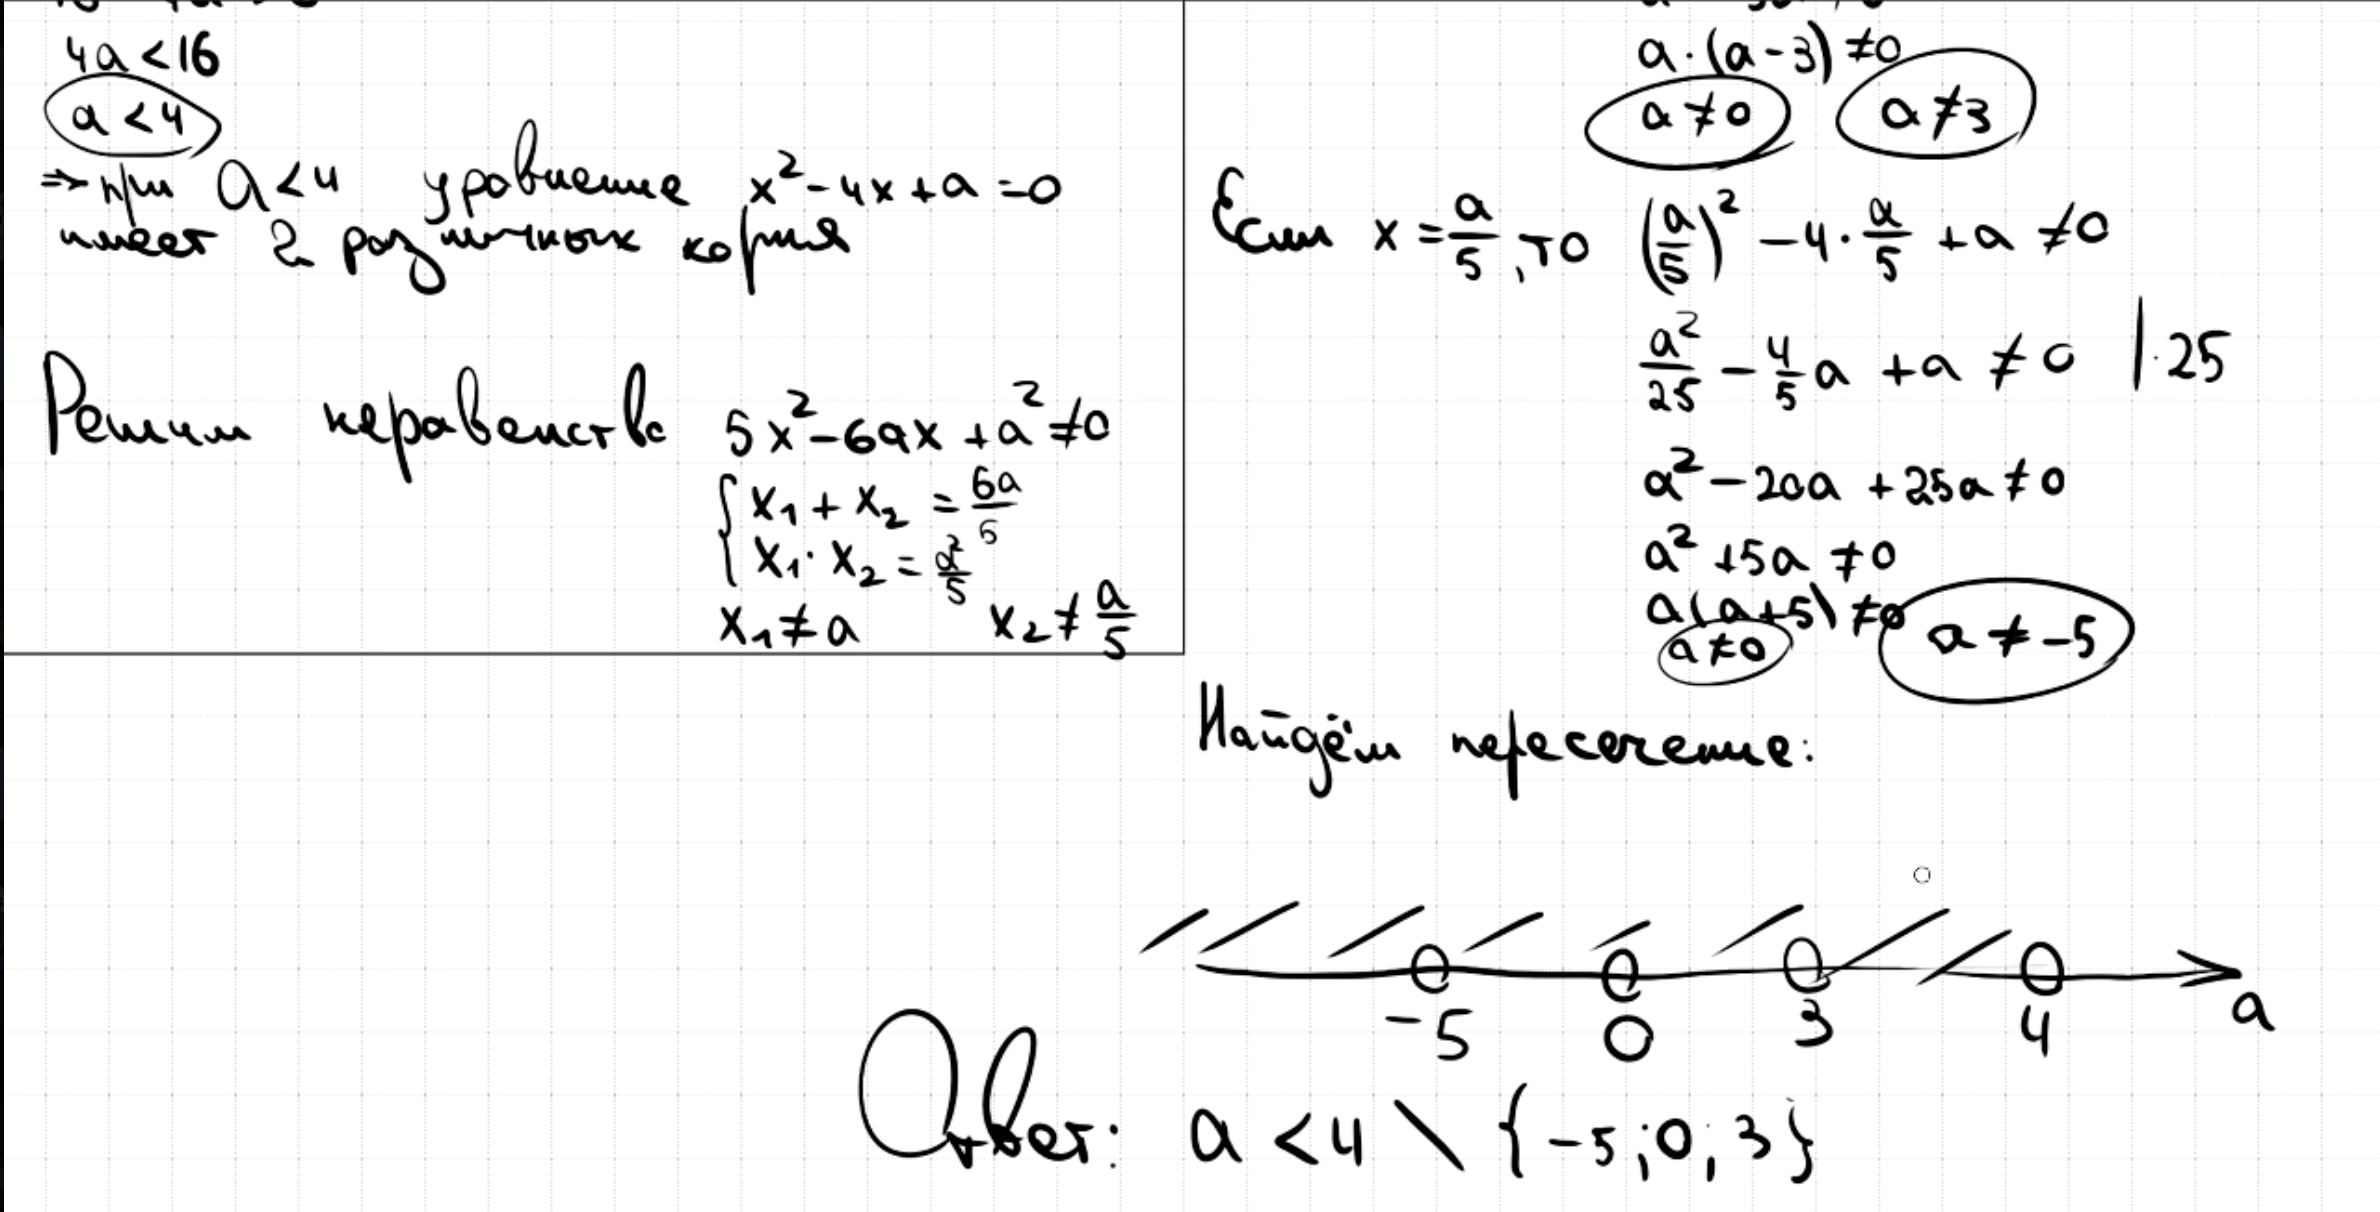 4a < 16
a < 4
⇒ при a < 4 уравнение x² - 4x + a = 0
имеет 2 различных корня
Решим неравенство 5x² - 6ax + a² ≠ 0
{ x₁ + x₂ = 6a/5
x₁ · x₂ = a²/5
x₁ ≠ a x₂ ≠ a/5
a · (a - 3) ≠ 0
a ≠ 0 a ≠ 3
Если x = a/5, то (a/5)² - 4 · a/5 + a ≠ 0
a²/25 - 4/5 a + a ≠ 0 | · 25
a² - 20a + 25a ≠ 0
a² + 5a ≠ 0
a(a + 5) ≠ 0
a ≠ 0 a ≠ -5
Найдём пересечение:
-5 0 3 4 a
Ответ: a < 4 \ {-5; 0; 3}